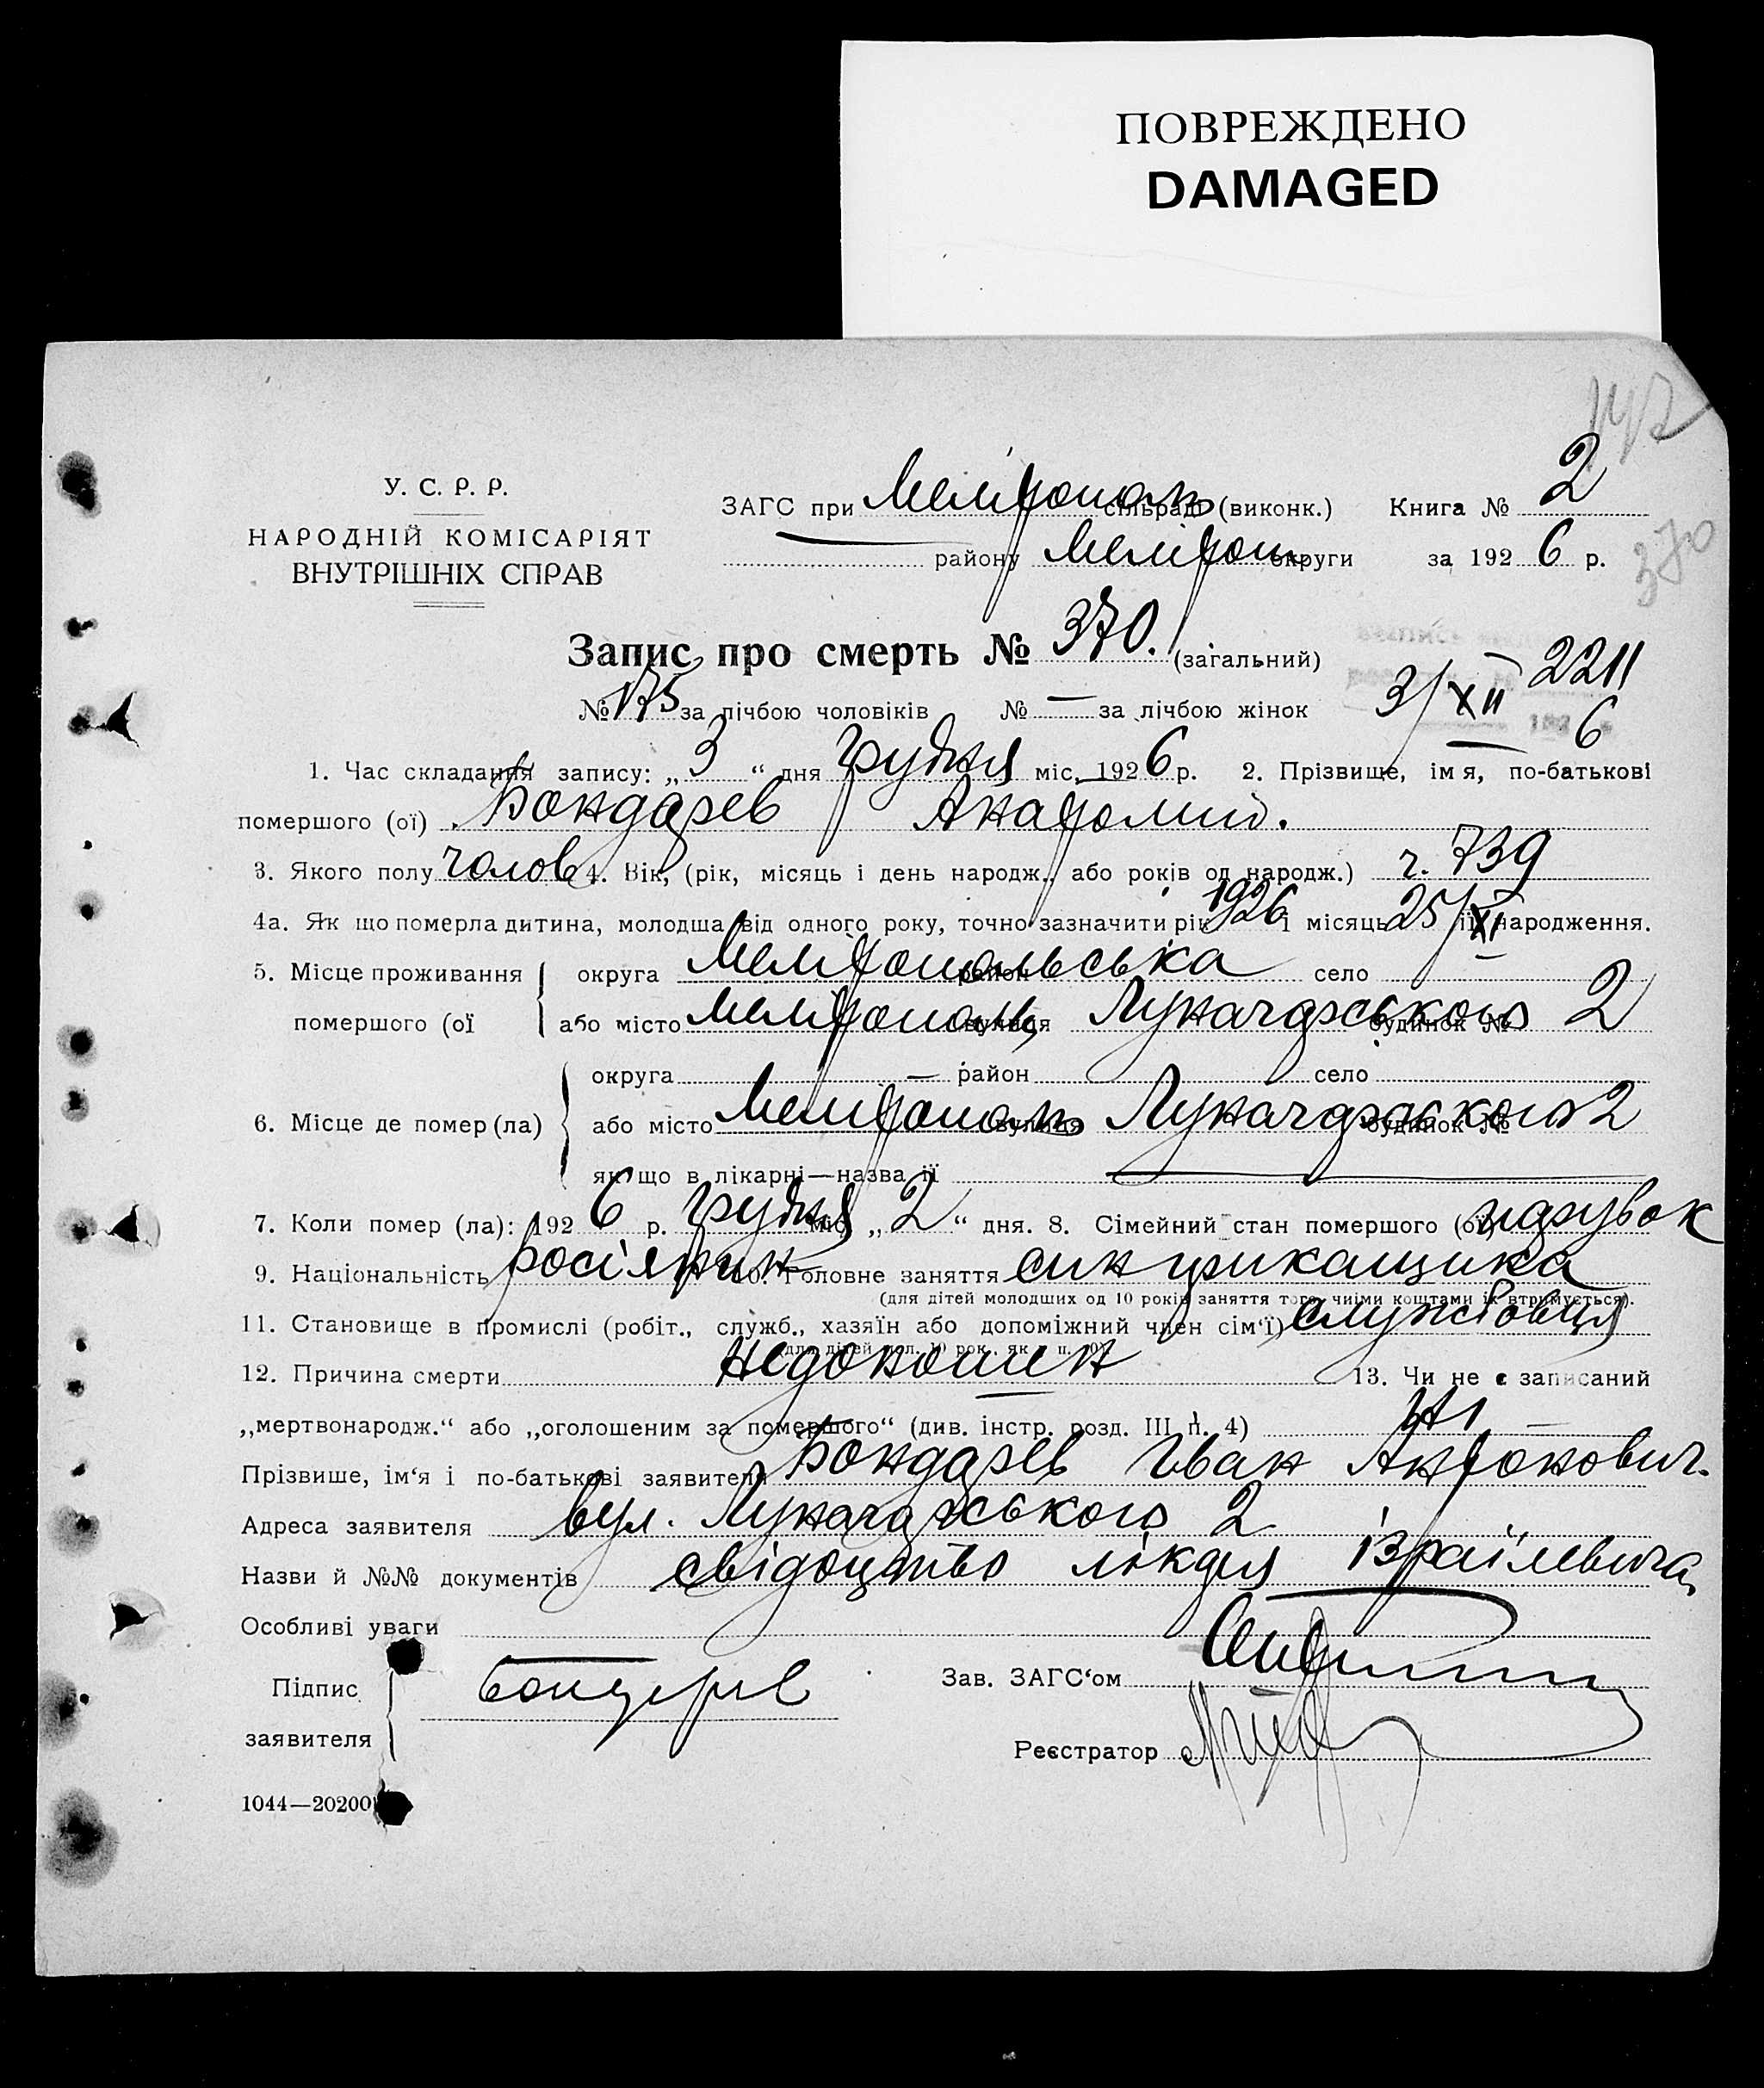 ПОВРЕЖДЕНО
DAMAGED
147
У. С. Р. Р.
НАРОДНІЙ КОМІСАРІЯТ
ВНУТРІШНІХ СПРАВ
ЗАГС при Мелітополь сільраді (виконк.) Книга № 2
району Мелітоп округи за 1926 р.
370
Запис про смерть № 370. (загальний)
2211
№ 175 за лічбою чоловіків № — за лічбою жінок 3/XII 6
1. Час складання запису: „3“ дня Грудня міс. 1926 р. 2. Прізвище, імя, по-батькові
помершого (ої) Бондарев Анатолий.
3. Якого полу чолов 4. Вік, (рік, місяць і день народж., або років од народж.) ч. 7 д
4а. Як що померла дитина, молодша від одного року, точно зазначити рік 1926 і місяць 25/XI її народження.
5. Місце проживання округа Мелітопольська район село
помершого (ої або місто Мелітополь вулиця Луначарського будинок № 2
округа — район село
6. Місце де помер (ла) або місто Мелітополь вулиця Луначарського будинок № 2
як що в лікарні—назва її —
7. Коли помер (ла): 1926 р. Грудня міс. „2“ дня. 8. Сімейний стан помершого (ої) парубок
9. Національність росіянин 10. Головне заняття син прикащика
(для дітей молодших од 10 років заняття того, чиїми коштами їх втримується).
11. Становище в промислі (робіт., служб., хазяїн або допоміжний член сім‘ї) службовця
12. Причина смерти недоношен 13. Чи не є записаний
„мертвонародж.“ або „оголошеним за помершого“ (див. інстр. розд. III п. 4) ні —
Прізвише, ім‘я і по-батькові заявителя Бондарев Іван Антонович.
Адреса заявителя вул. Луначарського 2
Назви й №№ документів свідоцтво лікаря Ізраїлевича
Особливі уваги
Підпис Бондарев Зав. ЗАГС‘ом
заявителя
Реєстратор
1044—20200